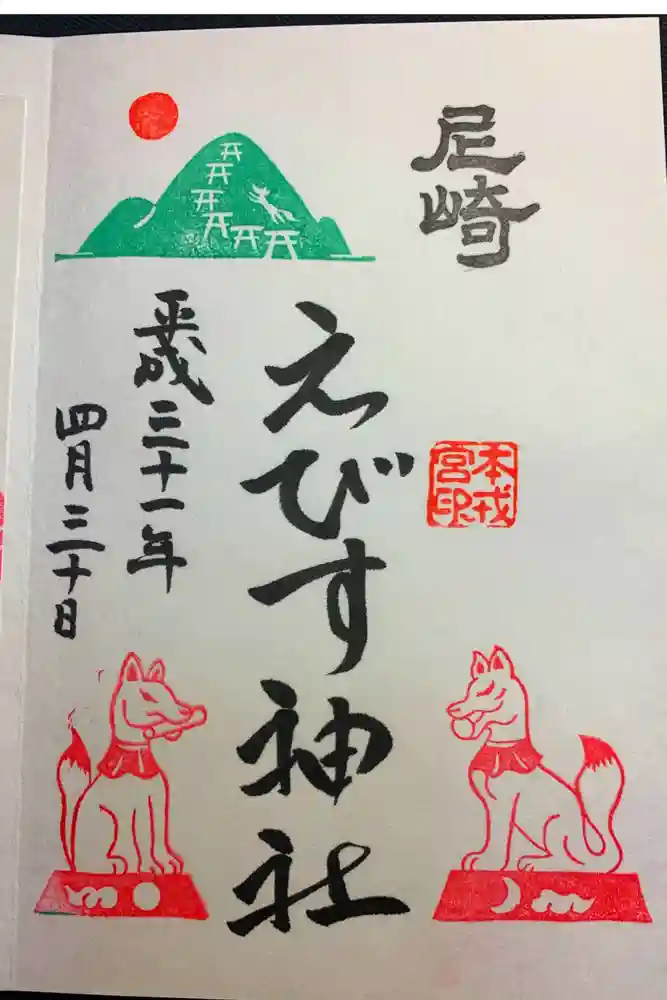 尼崎
えびす神社
本戎
宮印
平成三十一年
四月三十日